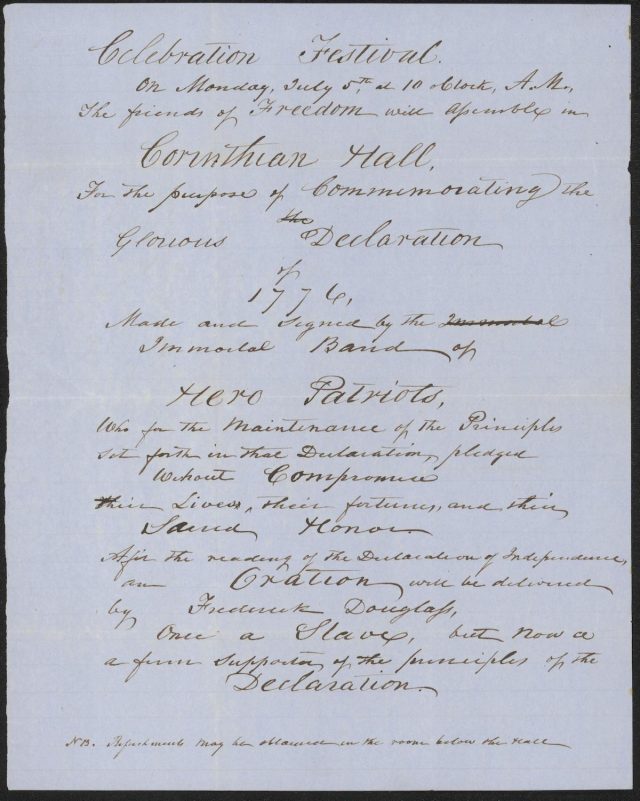 Celebration Festival.
On Monday, July 5th at 10 oClock, A.M.,
The friends of Freedom will Assemble in
Corinthian Hall,
For the purpose of Commemorating the
the
Glorious Declaration
of
1776,
Made and Signed by the Immortal
Immortal Band of
Hero Patriots,
Who for the Maintenance of the Principles
Set forth in that Declaration, pledged
Without Compromise
their Lives, their fortunes, and their
Sacred Honor.
After the reading of the Declaration of Independence,
an Oration will be delivered
by Frederick Douglass,
Once a Slave, but now a
a firm Supporter of the principles of the
Declaration.
NB. Refreshments may be obtained in the room below the Hall